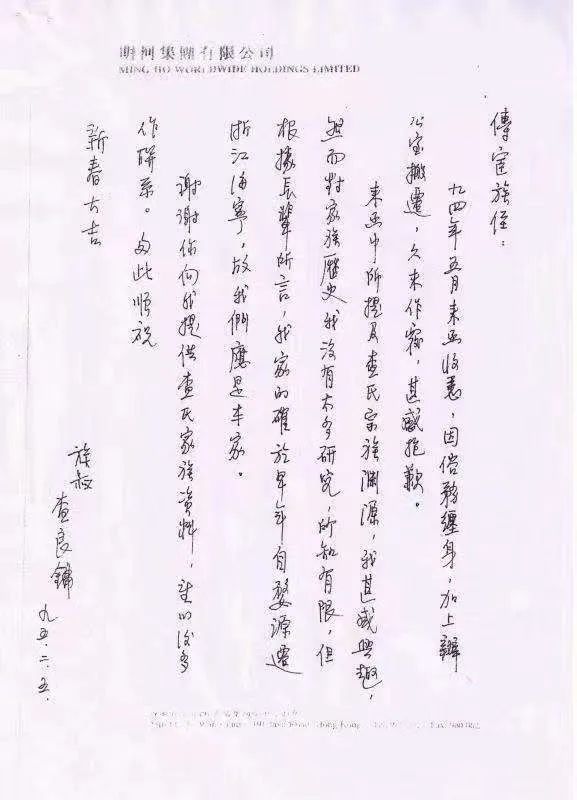 明河集團有限公司
MING HO WORLDWIDE HOLDINGS LIMITED
傳宦族侄：
九四年五月來函收悉，因俗務纏身，加上辦
公室搬遷，久未作覆，甚感抱歉。
來函中所提及查氏宗族淵源，我甚感興趣，
然而對家族歷史我沒有太多研究，所知有限，但
根據長輩所言，我家的確於早年自婺源遷
浙江海寧，故我們應是本家。
谢谢你向我提供查氏家族資料，望以後多
作联系。匆此順祝
新春大吉
族叔 查良鏞 九五.二.五.
Hong Kong